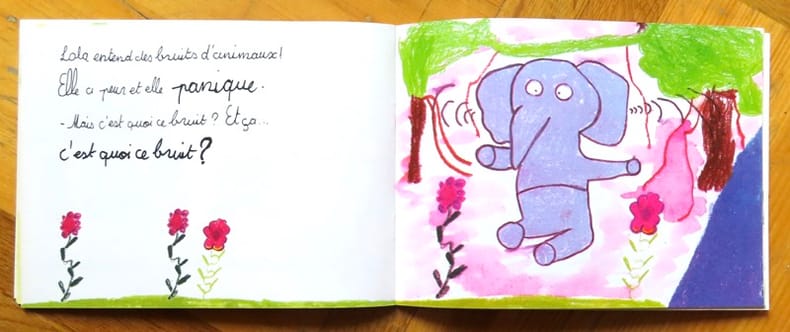 Lola entend des bruits d'animaux!
Elle a peur et elle panique.
- Mais c'est quoi ce bruit? Et ça...
c'est quoi ce bruit?